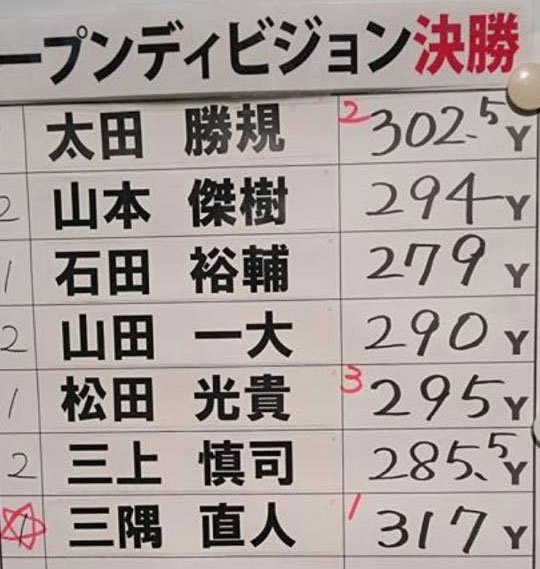 ープンディビジョン決勝
太田 勝規 2 302.5 Y
2 山本 傑樹 294 Y
1 石田 裕輔 279 Y
2 山田 一大 290 Y
1 松田 光貴 3 295 Y
2 三上 慎司 285.5 Y
1 三隅 直人 1 317 Y